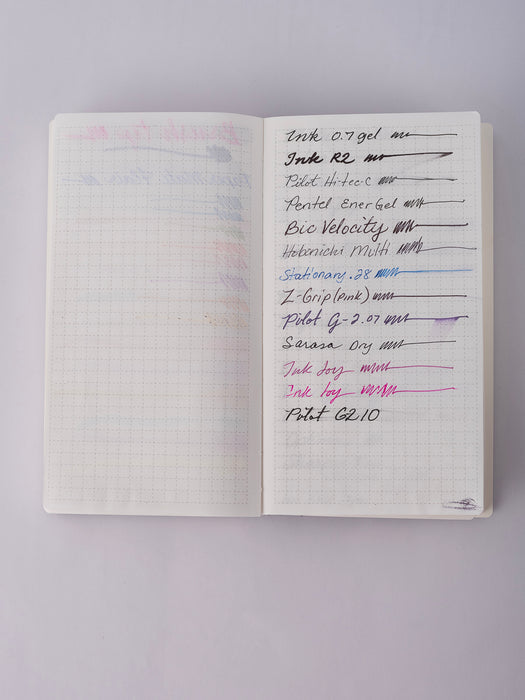 Ink 0.7 gel
Ink R2
Pilot Hi-tec-C
Pentel EnerGel
Bic Velocity
Hobonichi Multi
Stationary .28
Z-Grip (pink)
Pilot G-2.07
Sarasa Dry
Ink Joy
Ink Joy
Pilot G2 10